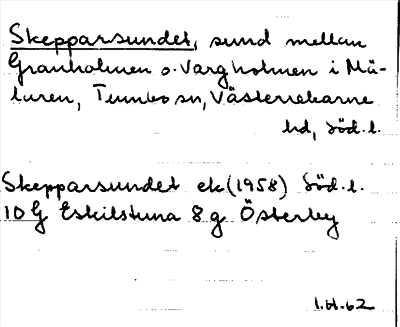 Skepparsundet, sund mellan
Granholmen o. Vargholmen i Mä-
laren, Tumbo sn, Västerrekarne
hd, Söd. l.
Skepparsundet ek (1958) Söd. l.
10 G Eskilstuna 8 g Österby
1.H.62